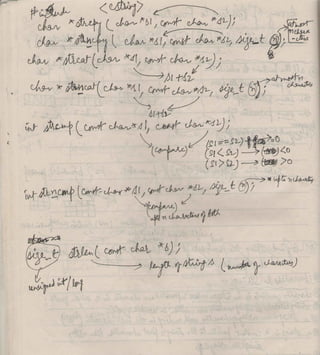 <cstring>
char *strcpy( char *s1, const char *s2);
char *strncpy( char *s1, const char *s2, size_t n);
char *strcat( char *s1, const char *s2);
s1+s2
char *strncat( char *s1, const char *s2, size_t n);
s1+s2
int strcmp( const char *s1, const char *s2);
(compare)
(s1 == s2)
(s1 < s2) → <0
(s1 > s2) → >0
int strncmp( const char *s1, const char *s2, size_t n);
(compare)
upto n characters
n characters of both
size_t strlen( const char *s);
→ length of string s (number of characters)
unsigned int / long